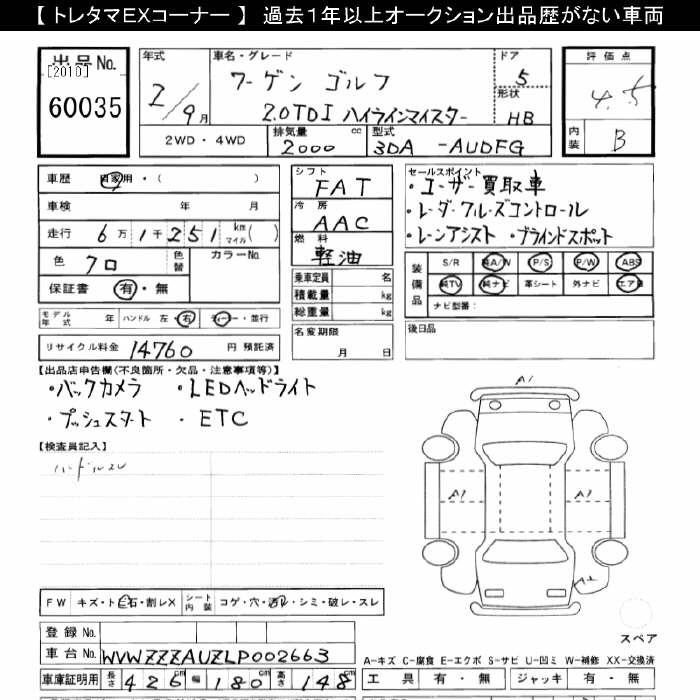 【 トレタマEXコーナー 】 過去１年以上オークション出品歴がない車両
出品No. [2010] 60035
年式 2/9月
車名・グレード ワーゲン ゴルフ
2.0TDI ハイラインマイスター
ドア 5
形状 HB
評価点 4.5
内装 B
2WD・4WD 排気量 2000 cc 型式 3DA -AUDFG
車歴 自家用・( )
車検 年 月
走行 6万1千251 km マイル( )
色 クロ 色替 カラーNo.
保証書 有・無
シフト FAT
冷房 AAC
燃料 軽油
乗車定員 名
積載量 kg
総重量 kg
名変期限 月 日
セールスポイント
・ユーザー買取車
・レーダークルーズコントロール
・レーンアシスト ・ブラインドスポット
装備品 S/R 純A/W P/S P/W ABS
純TV 純ナビ 革シート 外ナビ エアB
ナビ型番:
後日品
モデル年式 年 ハンドル 左・右 ディーラー・並行
リサイクル料金 14760 円 預託済
【出品店申告欄(不良箇所・欠品・注意事項等)】
・バックカメラ ・LEDヘッドライト
・プッシュスタート ・ETC
【検査員記入】
A1
A1
A1
A2
スペア
FW キズ・ト石・割レX シート内装 コゲ・穴・汚レ・シミ・破レ・スレ
登録No.
車台No. WVWZZZAUZLP002663
A-キズ C-腐食 E-エクボ S-サビ U-凹ミ W-補修 XX-交換済
車庫証明用 長さ 426 cm 幅 180 cm 高さ 148 cm
工具 有・無 ジャッキ 有・無